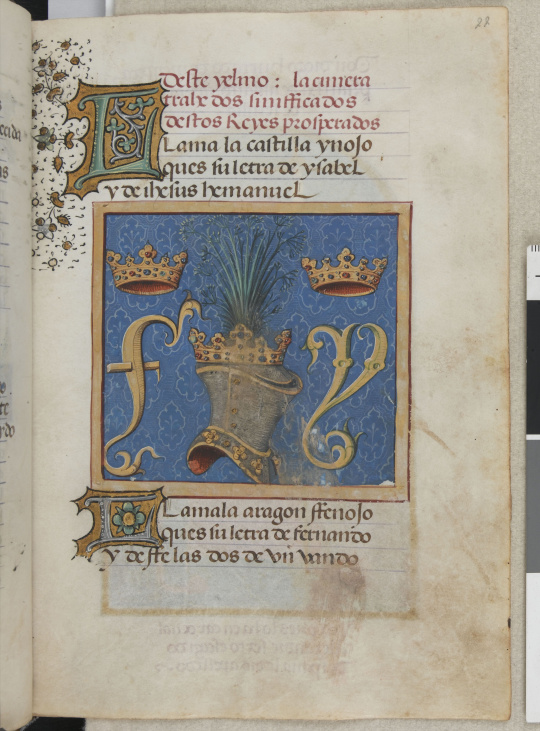 22
Deste yelmo : la cimera
trahe dos sinifficados
destos Reyes prosperados
LLama la castilla ynojo
ques su letra de ysabel
y de ihesus hemanuel
F Y
LLamala aragon ffenojo
ques su letra de fernando
y de ffe las dos de un vando